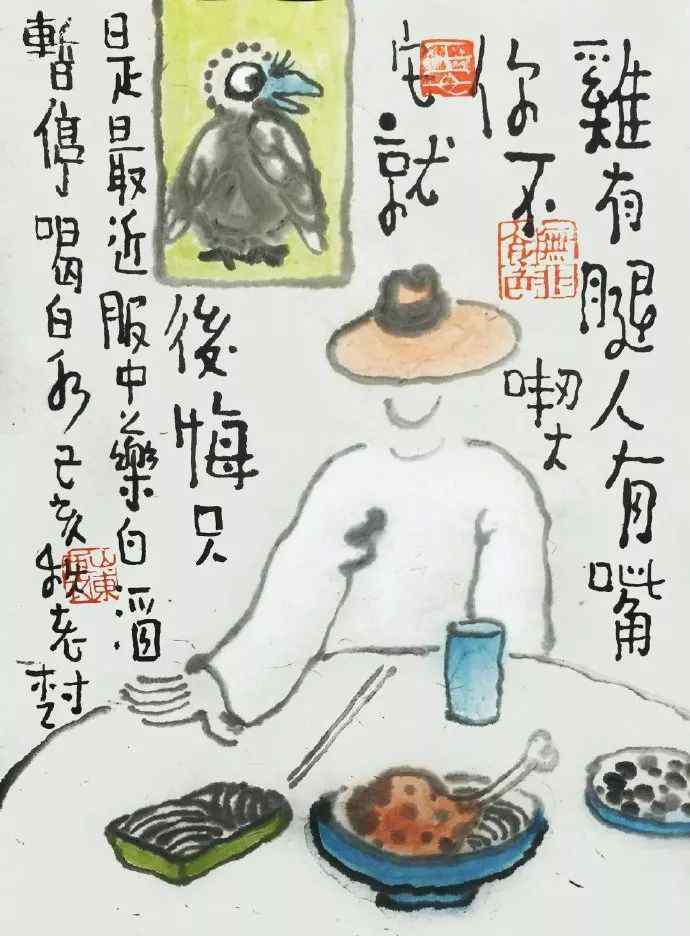 雞有腿人有嘴
你不喫
它就
後悔只
是最近服中藥白酒
暫停喝白水己亥秋老樹
無非食色